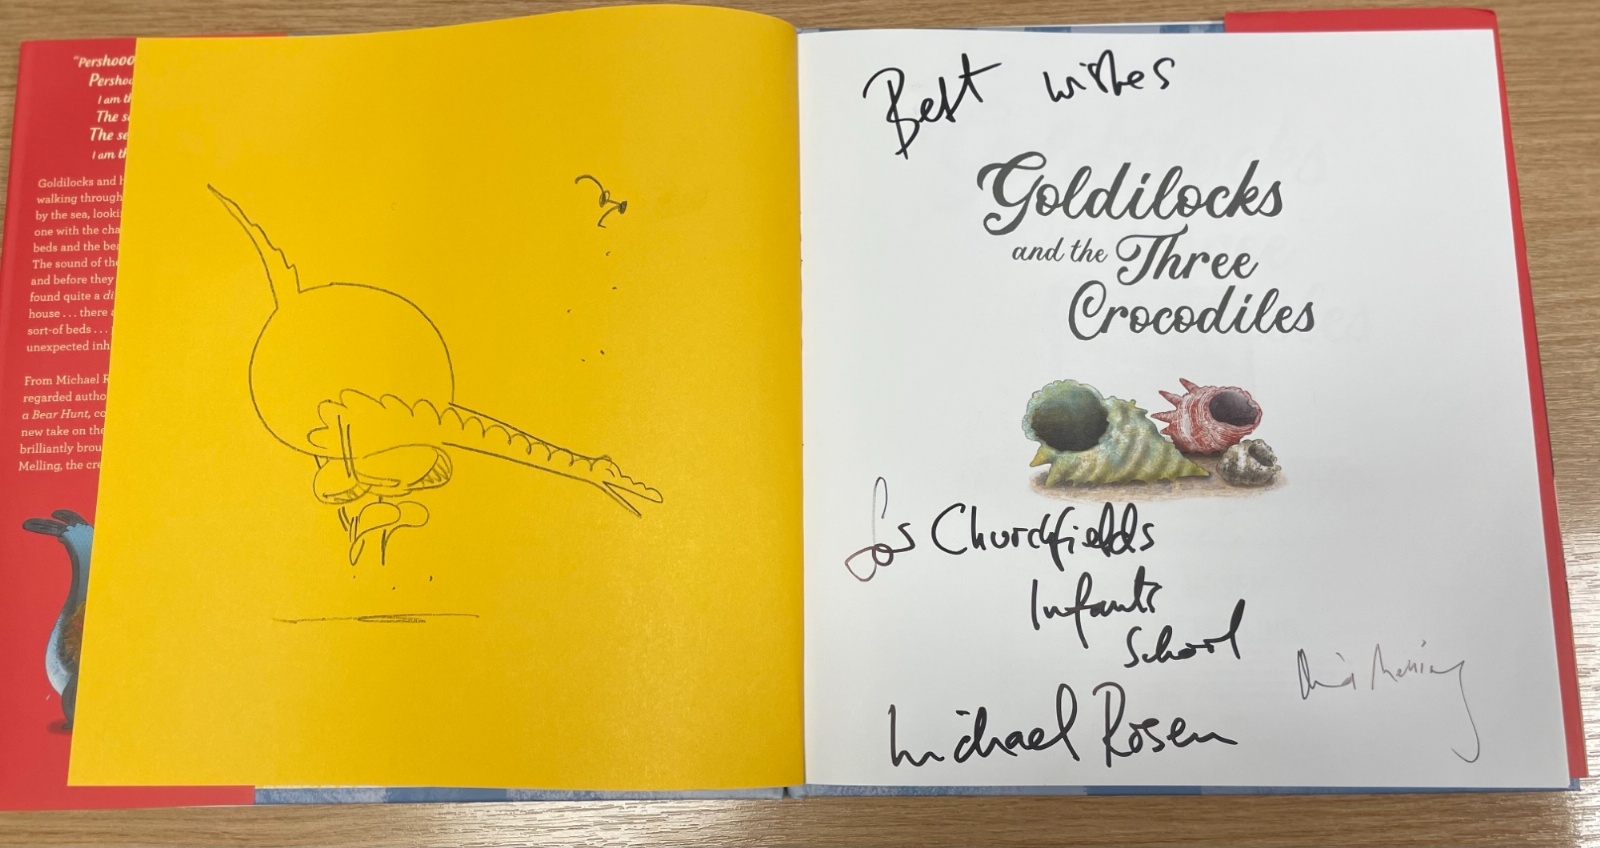 "Pershooo
Pershoo
I am th
The se
The se
I am th
Goldilocks and h
walking through
by the sea, looki
one with the cha
beds and the bea
The sound of the
and before they
found quite a di
house . . . there a
sort-of beds . . .
unexpected inh
From Michael R
regarded autho
a Bear Hunt, co
new take on the
brilliantly brou
Melling, the cre
Best wishes
Goldilocks
and the Three
Crocodiles
for Churchfields
Infants
School
Michael Rosen
David Melling